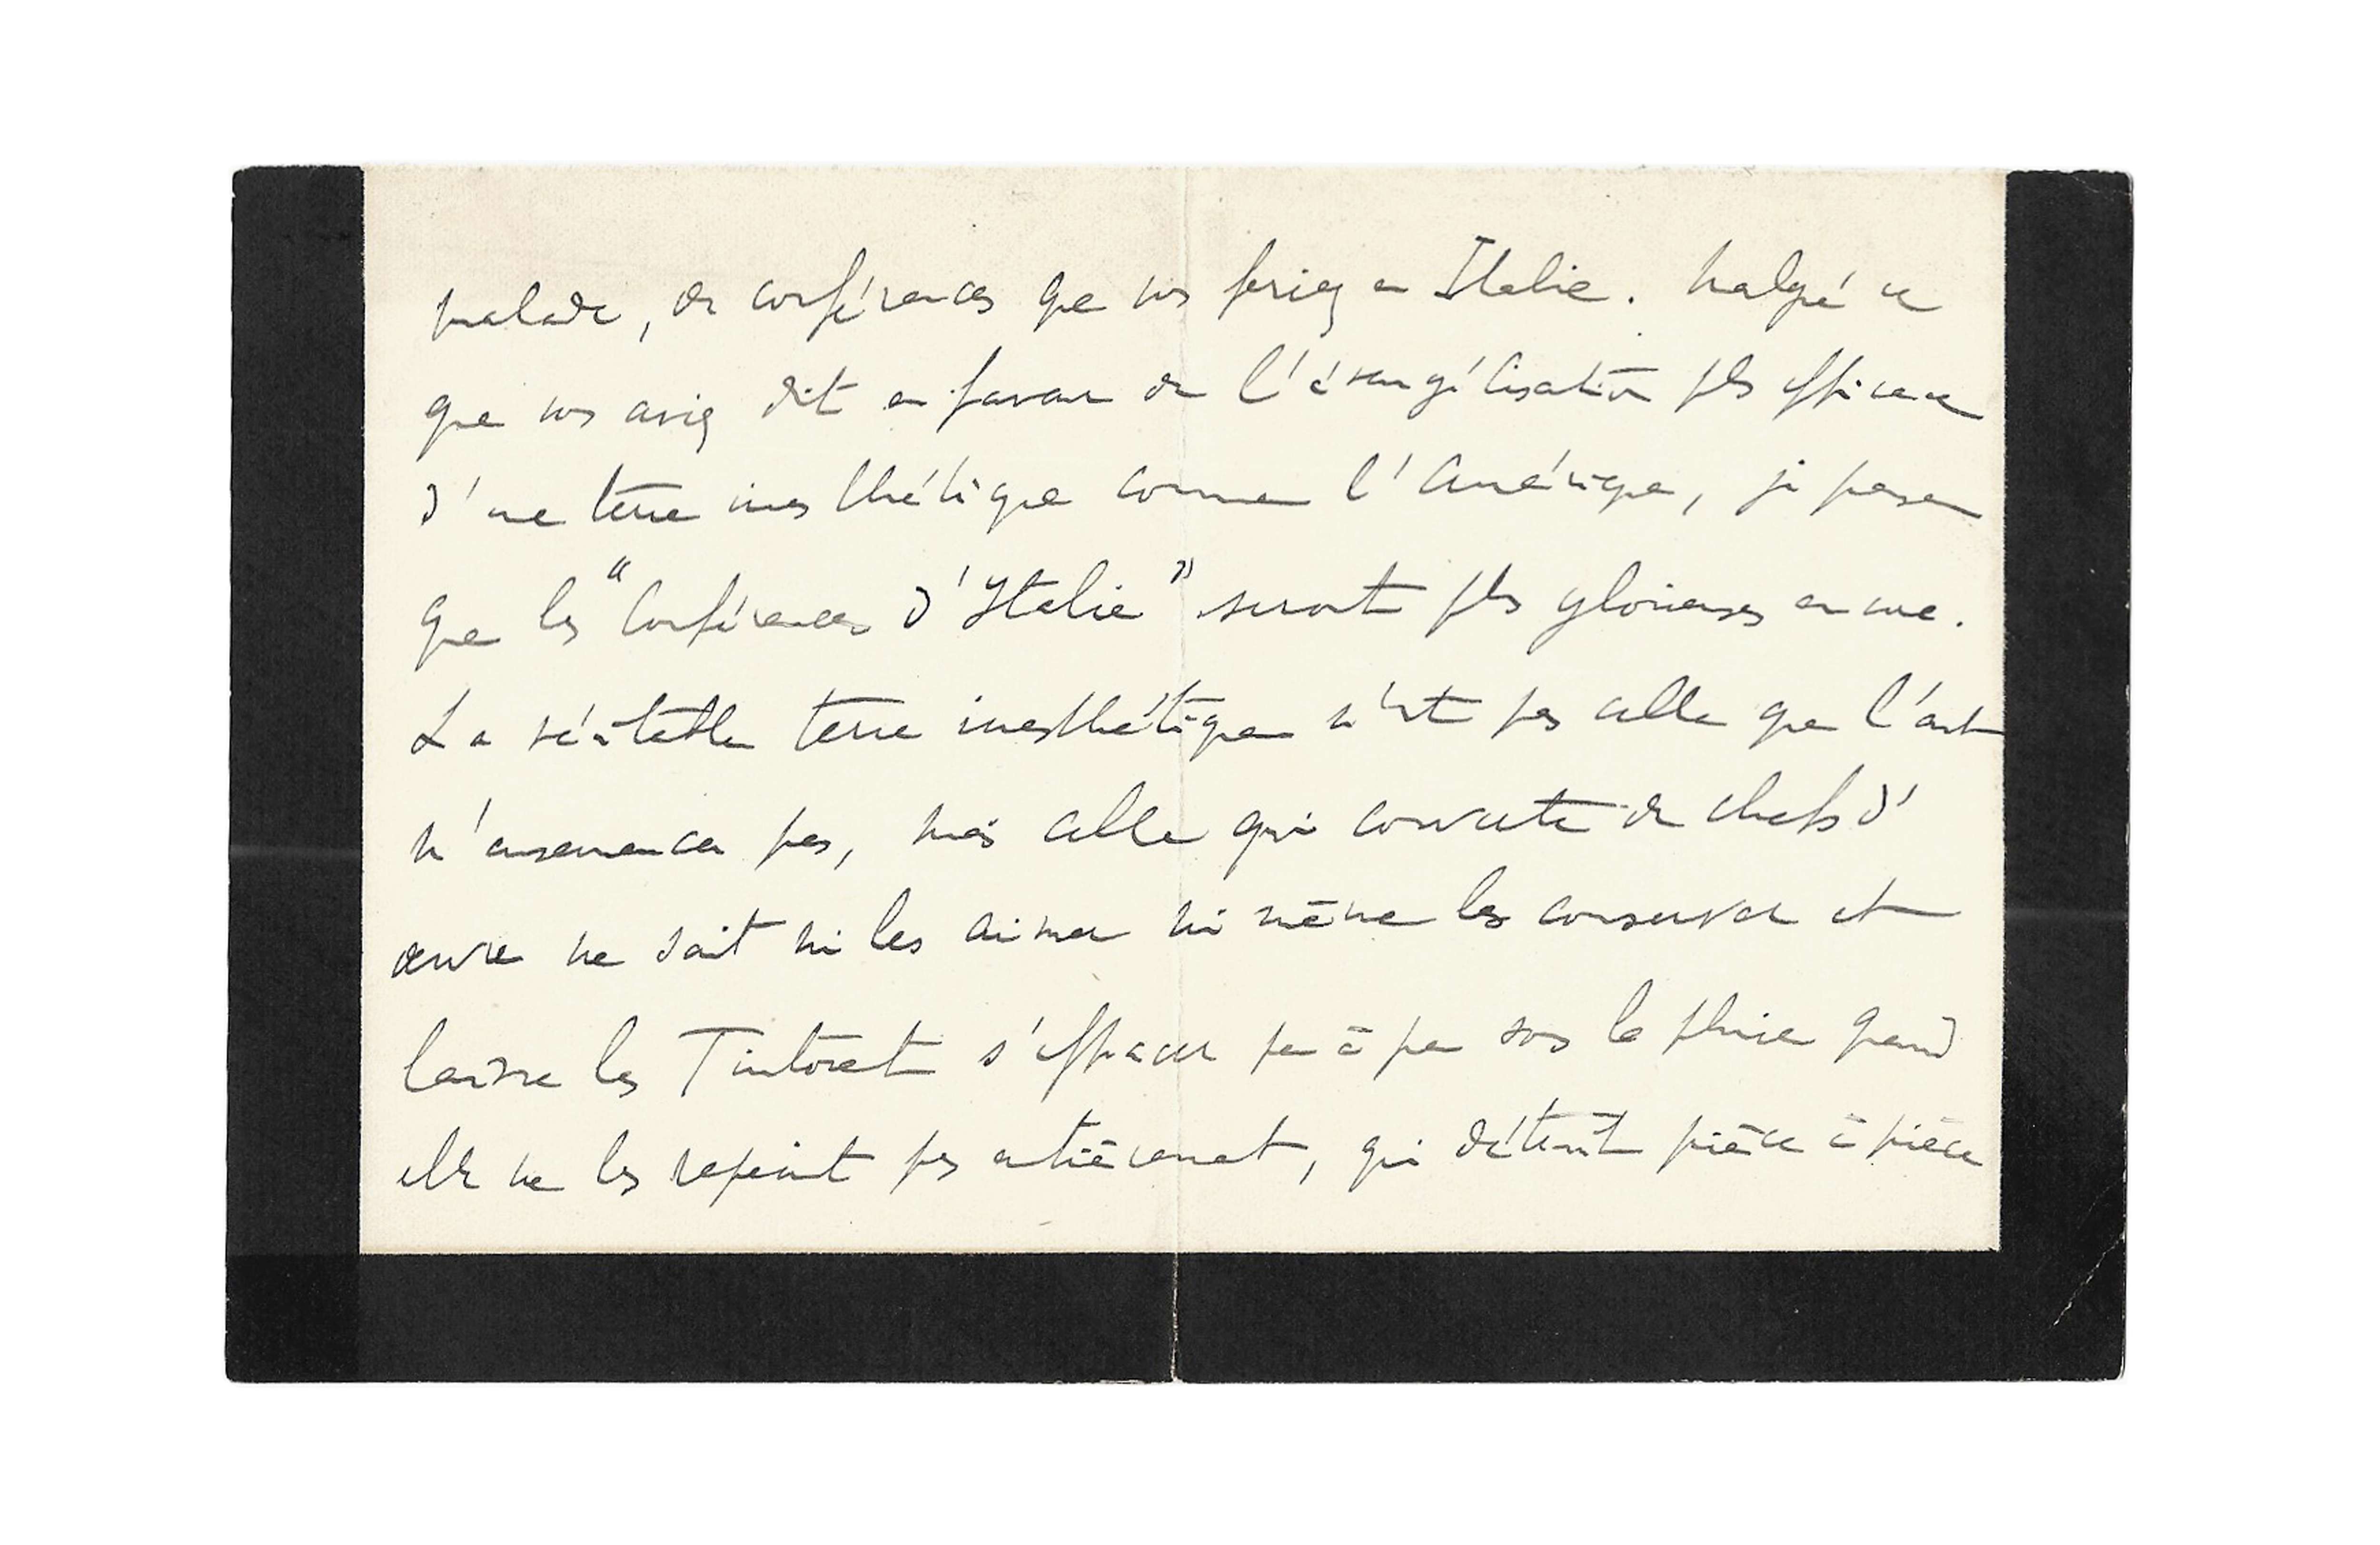 malade, de conférences que vs feriez en Italie. Malgré ce
que vs aviez dit en faveur de l'évangélisation pls efficace
d'une terre inesthétique comme l'Amérique, je pense
que les "Conférences d'Italie" seront pls glorieuses encore.
La véritable terre inesthétique n'est pas celle que l'art
n'ensemence pas, mais celle qui couverte de chefs d'
œuvre ne sait ni les aimer ni même les conserver et
laisse les Tintoret s'effacer peu à peu sous la pluie quand
elle ne les repeint pas entièrement, qui détruit pièce à pièce